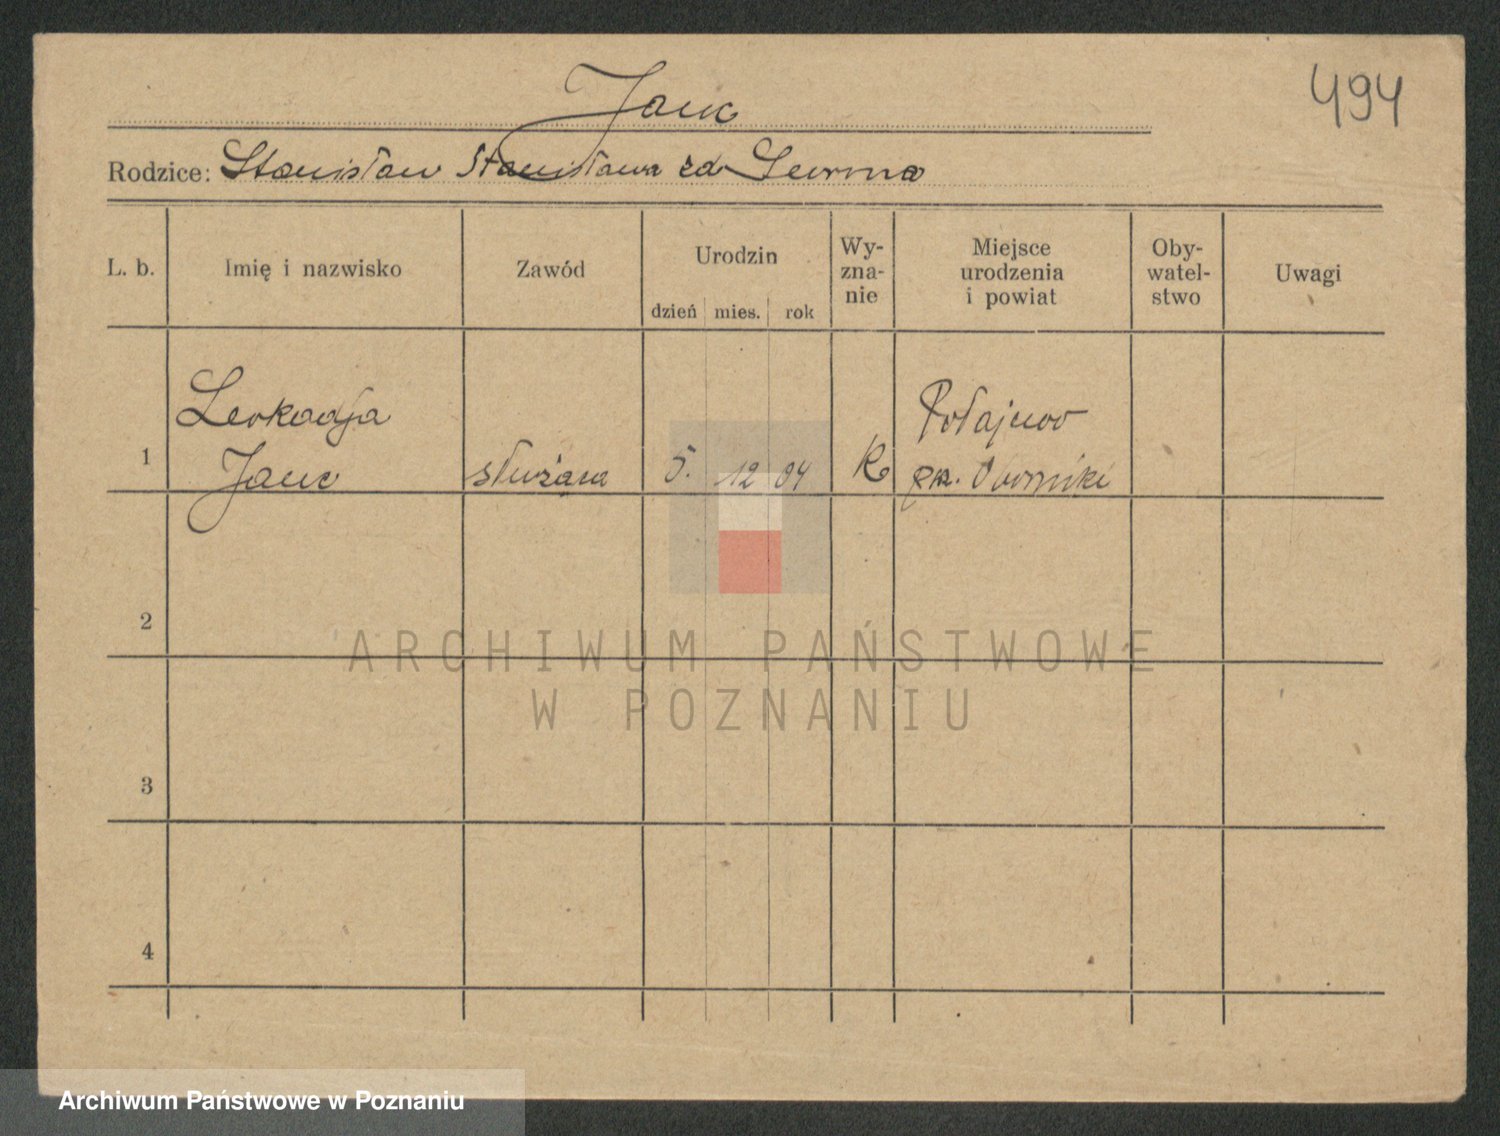 494
Janc
Rodzice: Stanisław Stanisława zd
L. b. Imię i nazwisko Zawód Urodzin dzień mies. rok Wy-zna-nie Miejsce urodzenia i powiat Oby-watel-stwo Uwagi
Leokadja Połajewo
1 Janc służąca 5. 12 04 K pw. Oborniki
2
3
4
ARCHIWUM PAŃSTWOWE
W POZNANIU
Archiwum Państwowe w Poznaniu